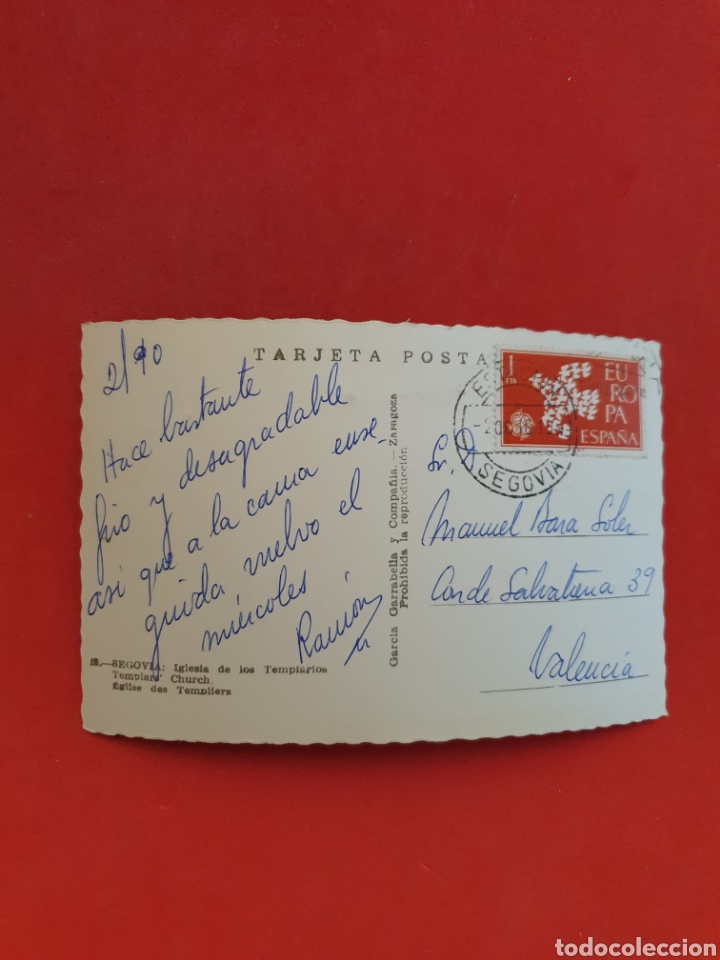 2/10
Hace bastante
frio y desagradable
así que a la cama ense
guida vuelvo el
miércoles
Ramón
SEGOVIA: Iglesia de los Templarios
Templars' Church
Église des Templiers
TARJETA POSTA
García Garrabella y Compañía.- Zaragoza
Prohibida la reproducción
1
PTA
EU
RO
PA
ESPAÑA
SEGOVIA
Sr. D.
Manuel Bara Soler
Conde Salvatierra 39
Valencia
todocoleccion